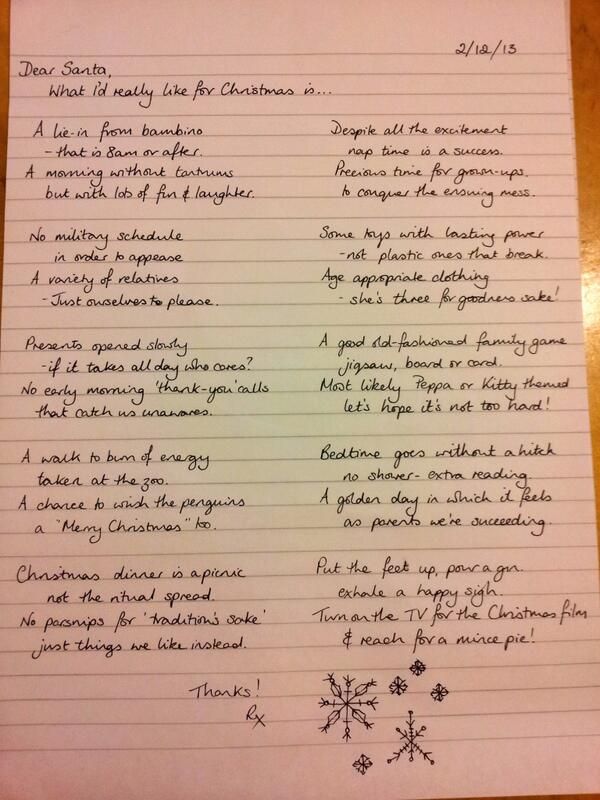 2/12/13
Dear Santa,
What I'd really like for Christmas is...
A lie-in from bambino
- that is 8am or after.
A morning without tantrums
but with lots of fun & laughter.
No military schedule
in order to appease
A variety of relatives
- Just ourselves to please.
Presents opened slowly
- if it takes all day who cares?
No early morning 'thank-you' calls
that catch us unawares.
A walk to burn of energy
taken at the zoo.
A chance to wish the penguins
a "Merry Christmas" too.
Christmas dinner is a picnic
not the ritual spread.
No parsnips for 'tradition's sake'
just things we like instead.
Despite all the excitement
nap time is a success.
Precious time for grown-ups.
to conquer the ensuing mess.
Some toys with lasting power
- not plastic ones that break.
Age appropriate clothing
- she's three for goodness sake!
A good old-fashioned family game
jigsaw, board or card.
Most likely Peppa or Kitty themed
let's hope it's not too hard!
Bedtime goes without a hitch
no shower - extra reading.
A golden day in which it feels
as parents we're succeeding.
Put the feet up, pour a gin.
exhale a happy sigh.
Turn on the TV for the Christmas film
& reach for a mince pie!
Thanks!
Rx